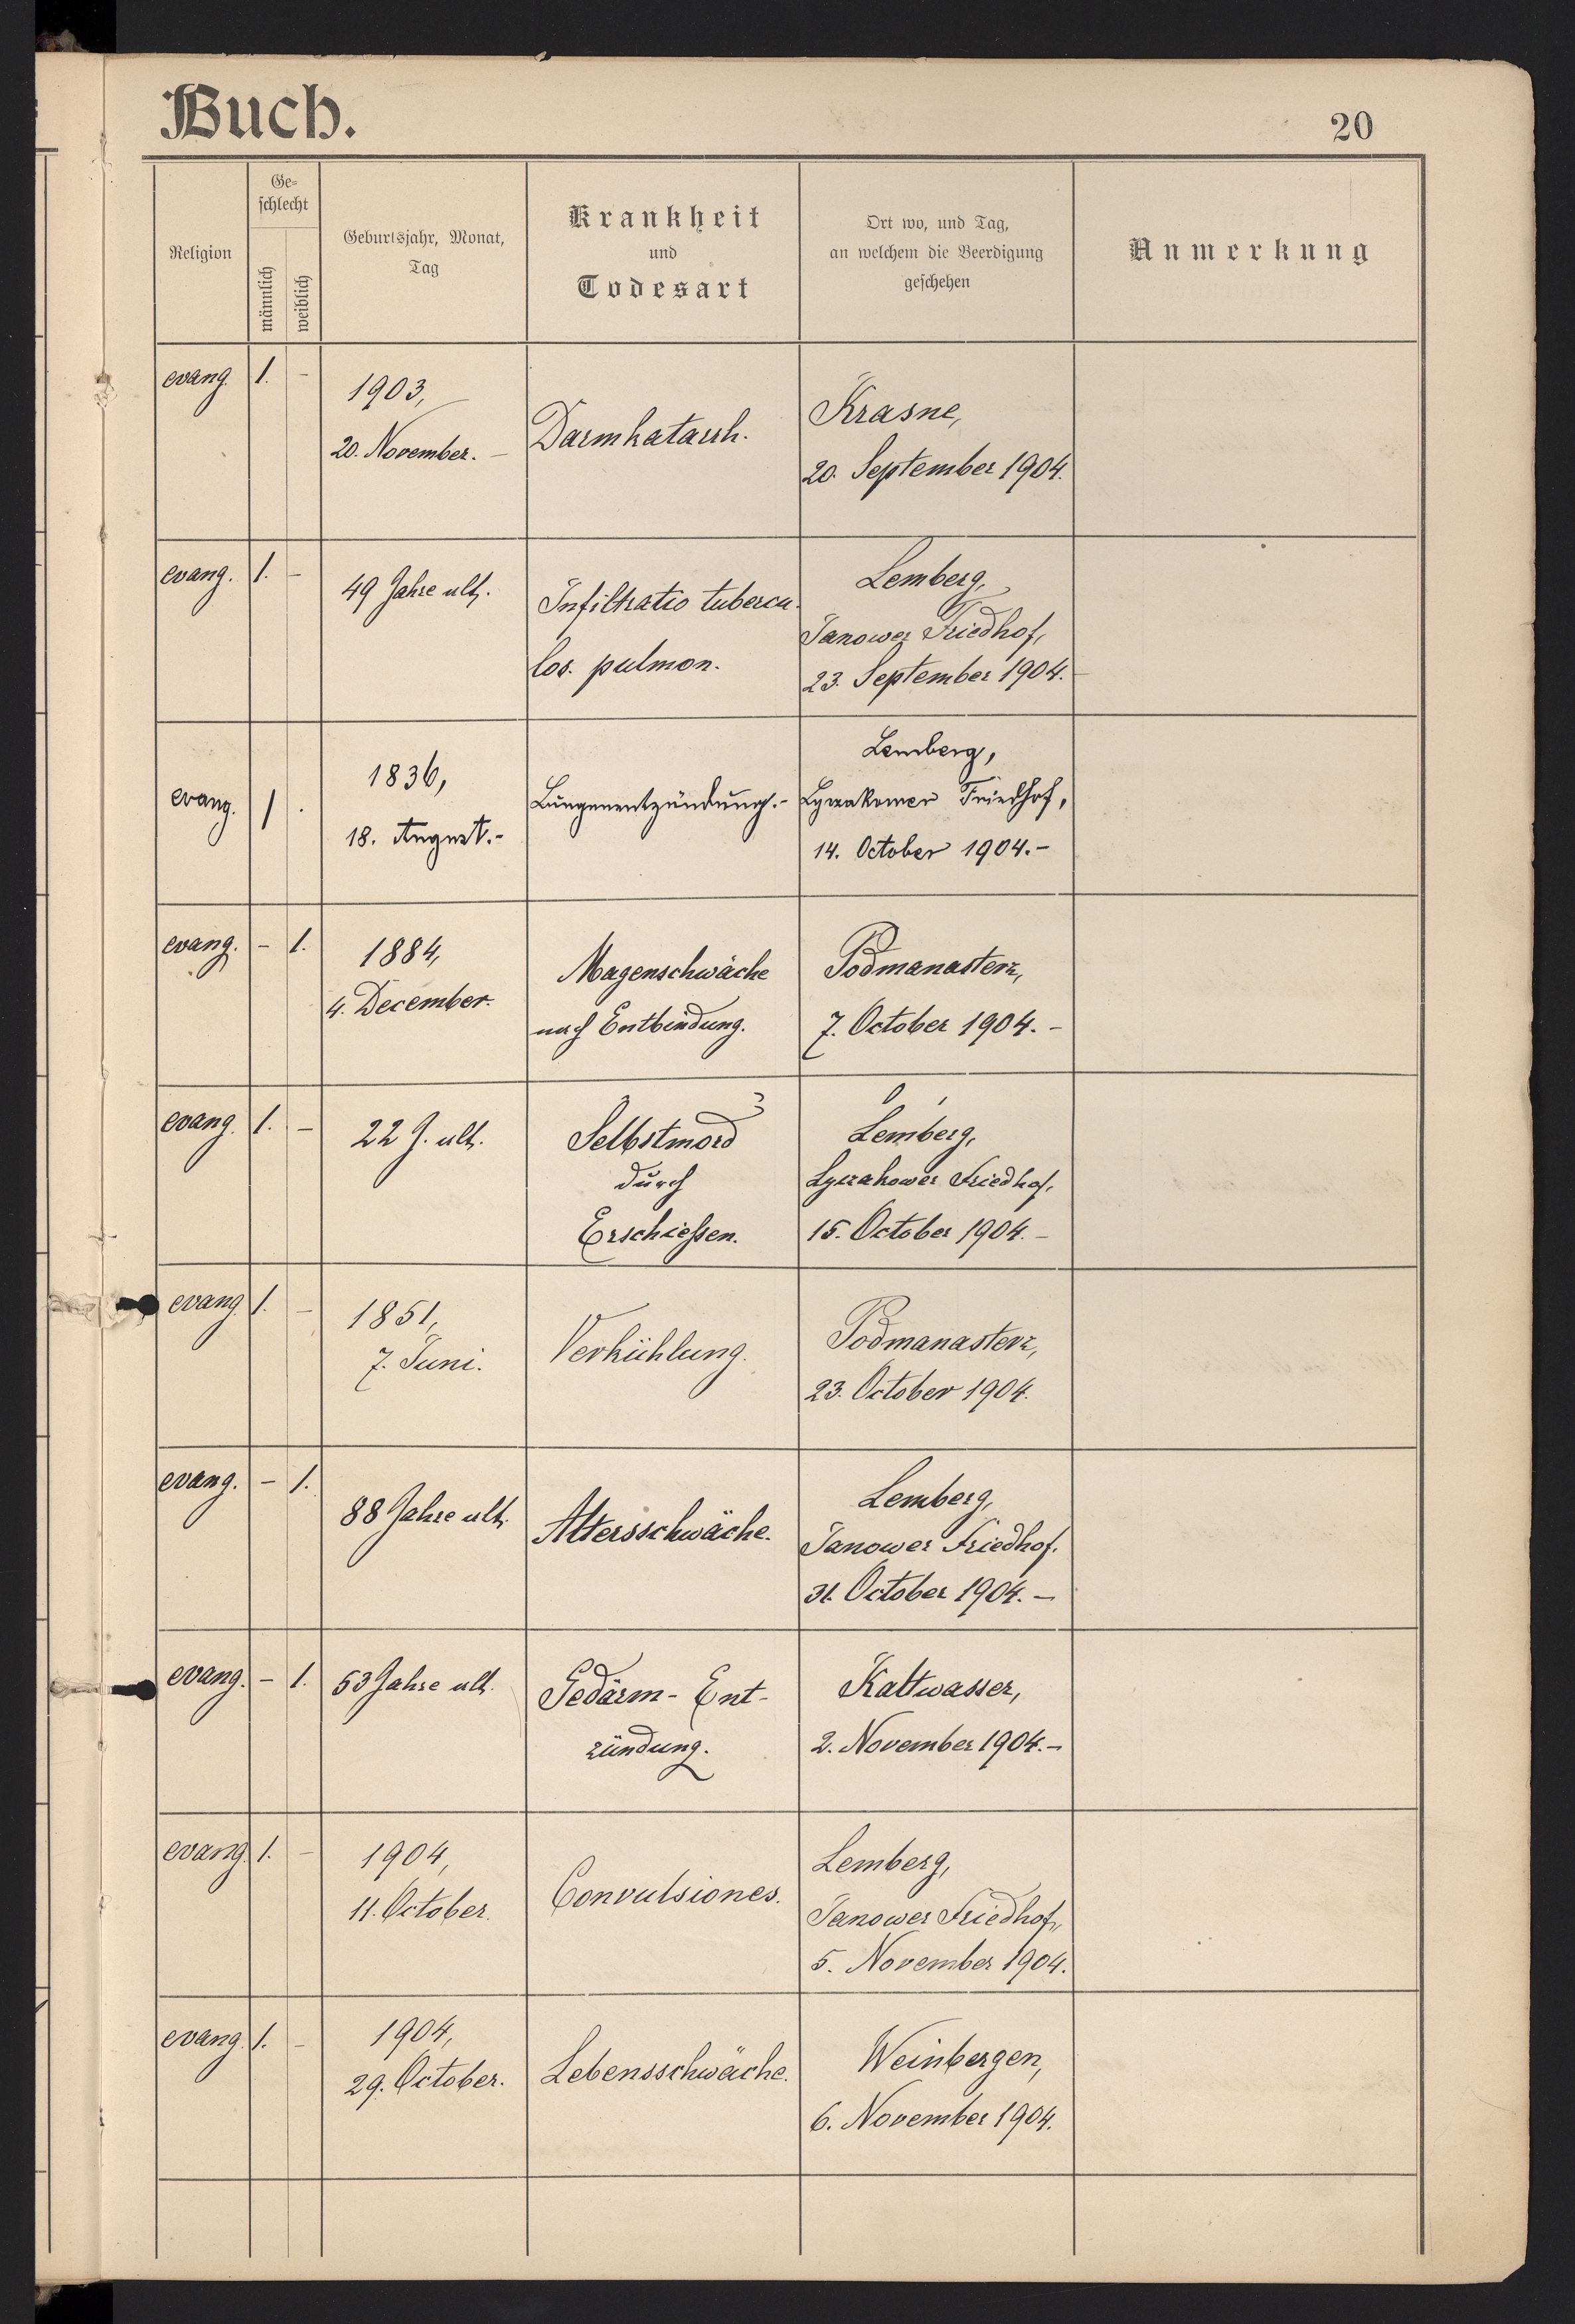 Buch.
20
Religion
Ge-
schlecht
männlich
weiblich
Geburtsjahr, Monat,
Tag
Krankheit
und
Todesart
Ort wo, und Tag,
an welchem die Beerdigung
geschehen
Anmerkung
evang. 1. -
1903,
20. November. -
Darmkatarrh.
Krasne,
20. September 1904.
evang. 1. -
49 Jahre alt.
Infiltratio tubercu-
los. pulmon.
Lemberg,
Janower Friedhof,
23. September 1904. -
evang. 1 .
1836,
18. August. -
Lungenentzündung. -
Lemberg,
Lyczakower Friedhof,
14. October 1904. -
evang. - 1.
1884,
4. December.
Magenschwäche
nach Entbindung.
Podmanasterz,
7. October 1904. -
evang. 1. -
22 J. alt.
Selbstmord
durch
Erschießen.
Lemberg,
Lyczakower Friedhof,
15. October 1904. -
evang. 1. -
1851,
7. Juni.
Verkühlung.
Podmanasterz,
23. October 1904.
evang. - 1.
88 Jahre alt.
Altersschwäche.
Lemberg,
Janower Friedhof.
31. October 1904. -
evang. - 1.
53 Jahre alt.
Gedärm- Ent-
zündung.
Kaltwasser,
2. November 1904. -
evang. 1. -
1904,
11. October.
Convulsiones.
Lemberg,
Janower Friedhof,
5. November 1904.
evang. 1. -
1904,
29. October.
Lebensschwäche.
Weinbergen,
6. November 1904.